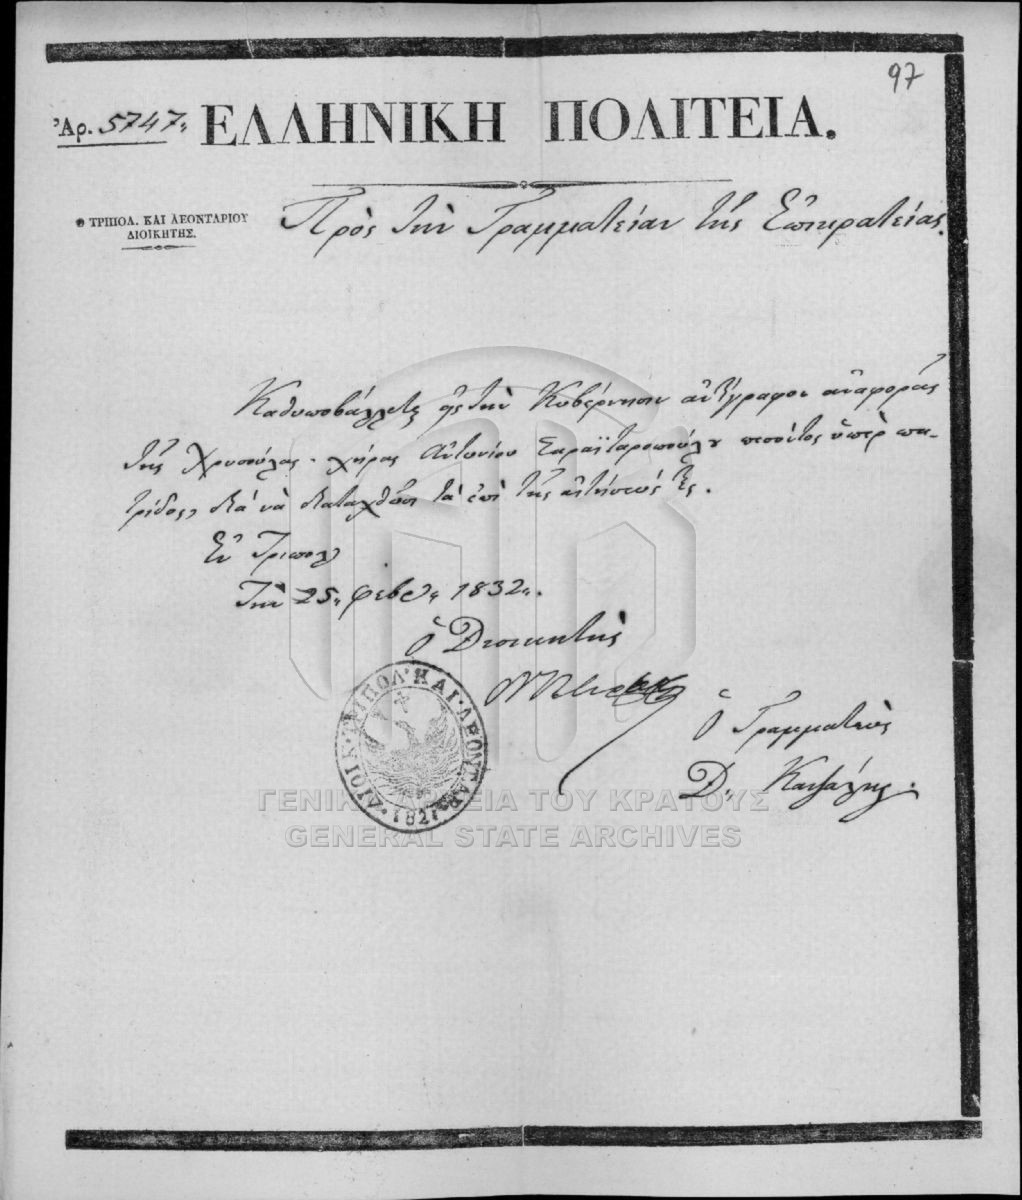 97
Ἀρ. 5747. ΕΛΛΗΝΙΚΗ ΠΟΛΙΤΕΙΑ.
Ο ΤΡΙΠΟΛ. ΚΑΙ ΛΕΟΝΤΑΡΙΟΥ
ΔΙΟΙΚΗΤΗΣ.
Πρὸς τὴν Γραμματείαν τῆς Ἐπικρατείας.
Καθυποβάλλεται εἰς τὴν Κυβέρνησιν ἀντίγραφον ἀναφορᾶς
τῆς Χρυσούλας χήρας Ἀντωνίου Σαραϊταροπούλου πεσόντος ὑπὲρ πα-
τρίδος, διὰ νὰ διαταχθῶσι τὰ ἐπὶ τῆς αἰτήσεώς της.
Ἐν Τριπολ
Τὴν 25 φεβρ 1832.
ὁ Διοικητὴς
Ὁ Γραμματεὺς
Δ.
ΔΙΟΙΚ· ΤΡΙΠΟΛ· ΚΑΙ· ΛΕΟΝΤΑΡ·
1821
ΓΕΝΙΚΑ ΑΡΧΕΙΑ ΤΟΥ ΚΡΑΤΟΥΣ
GENERAL STATE ARCHIVES